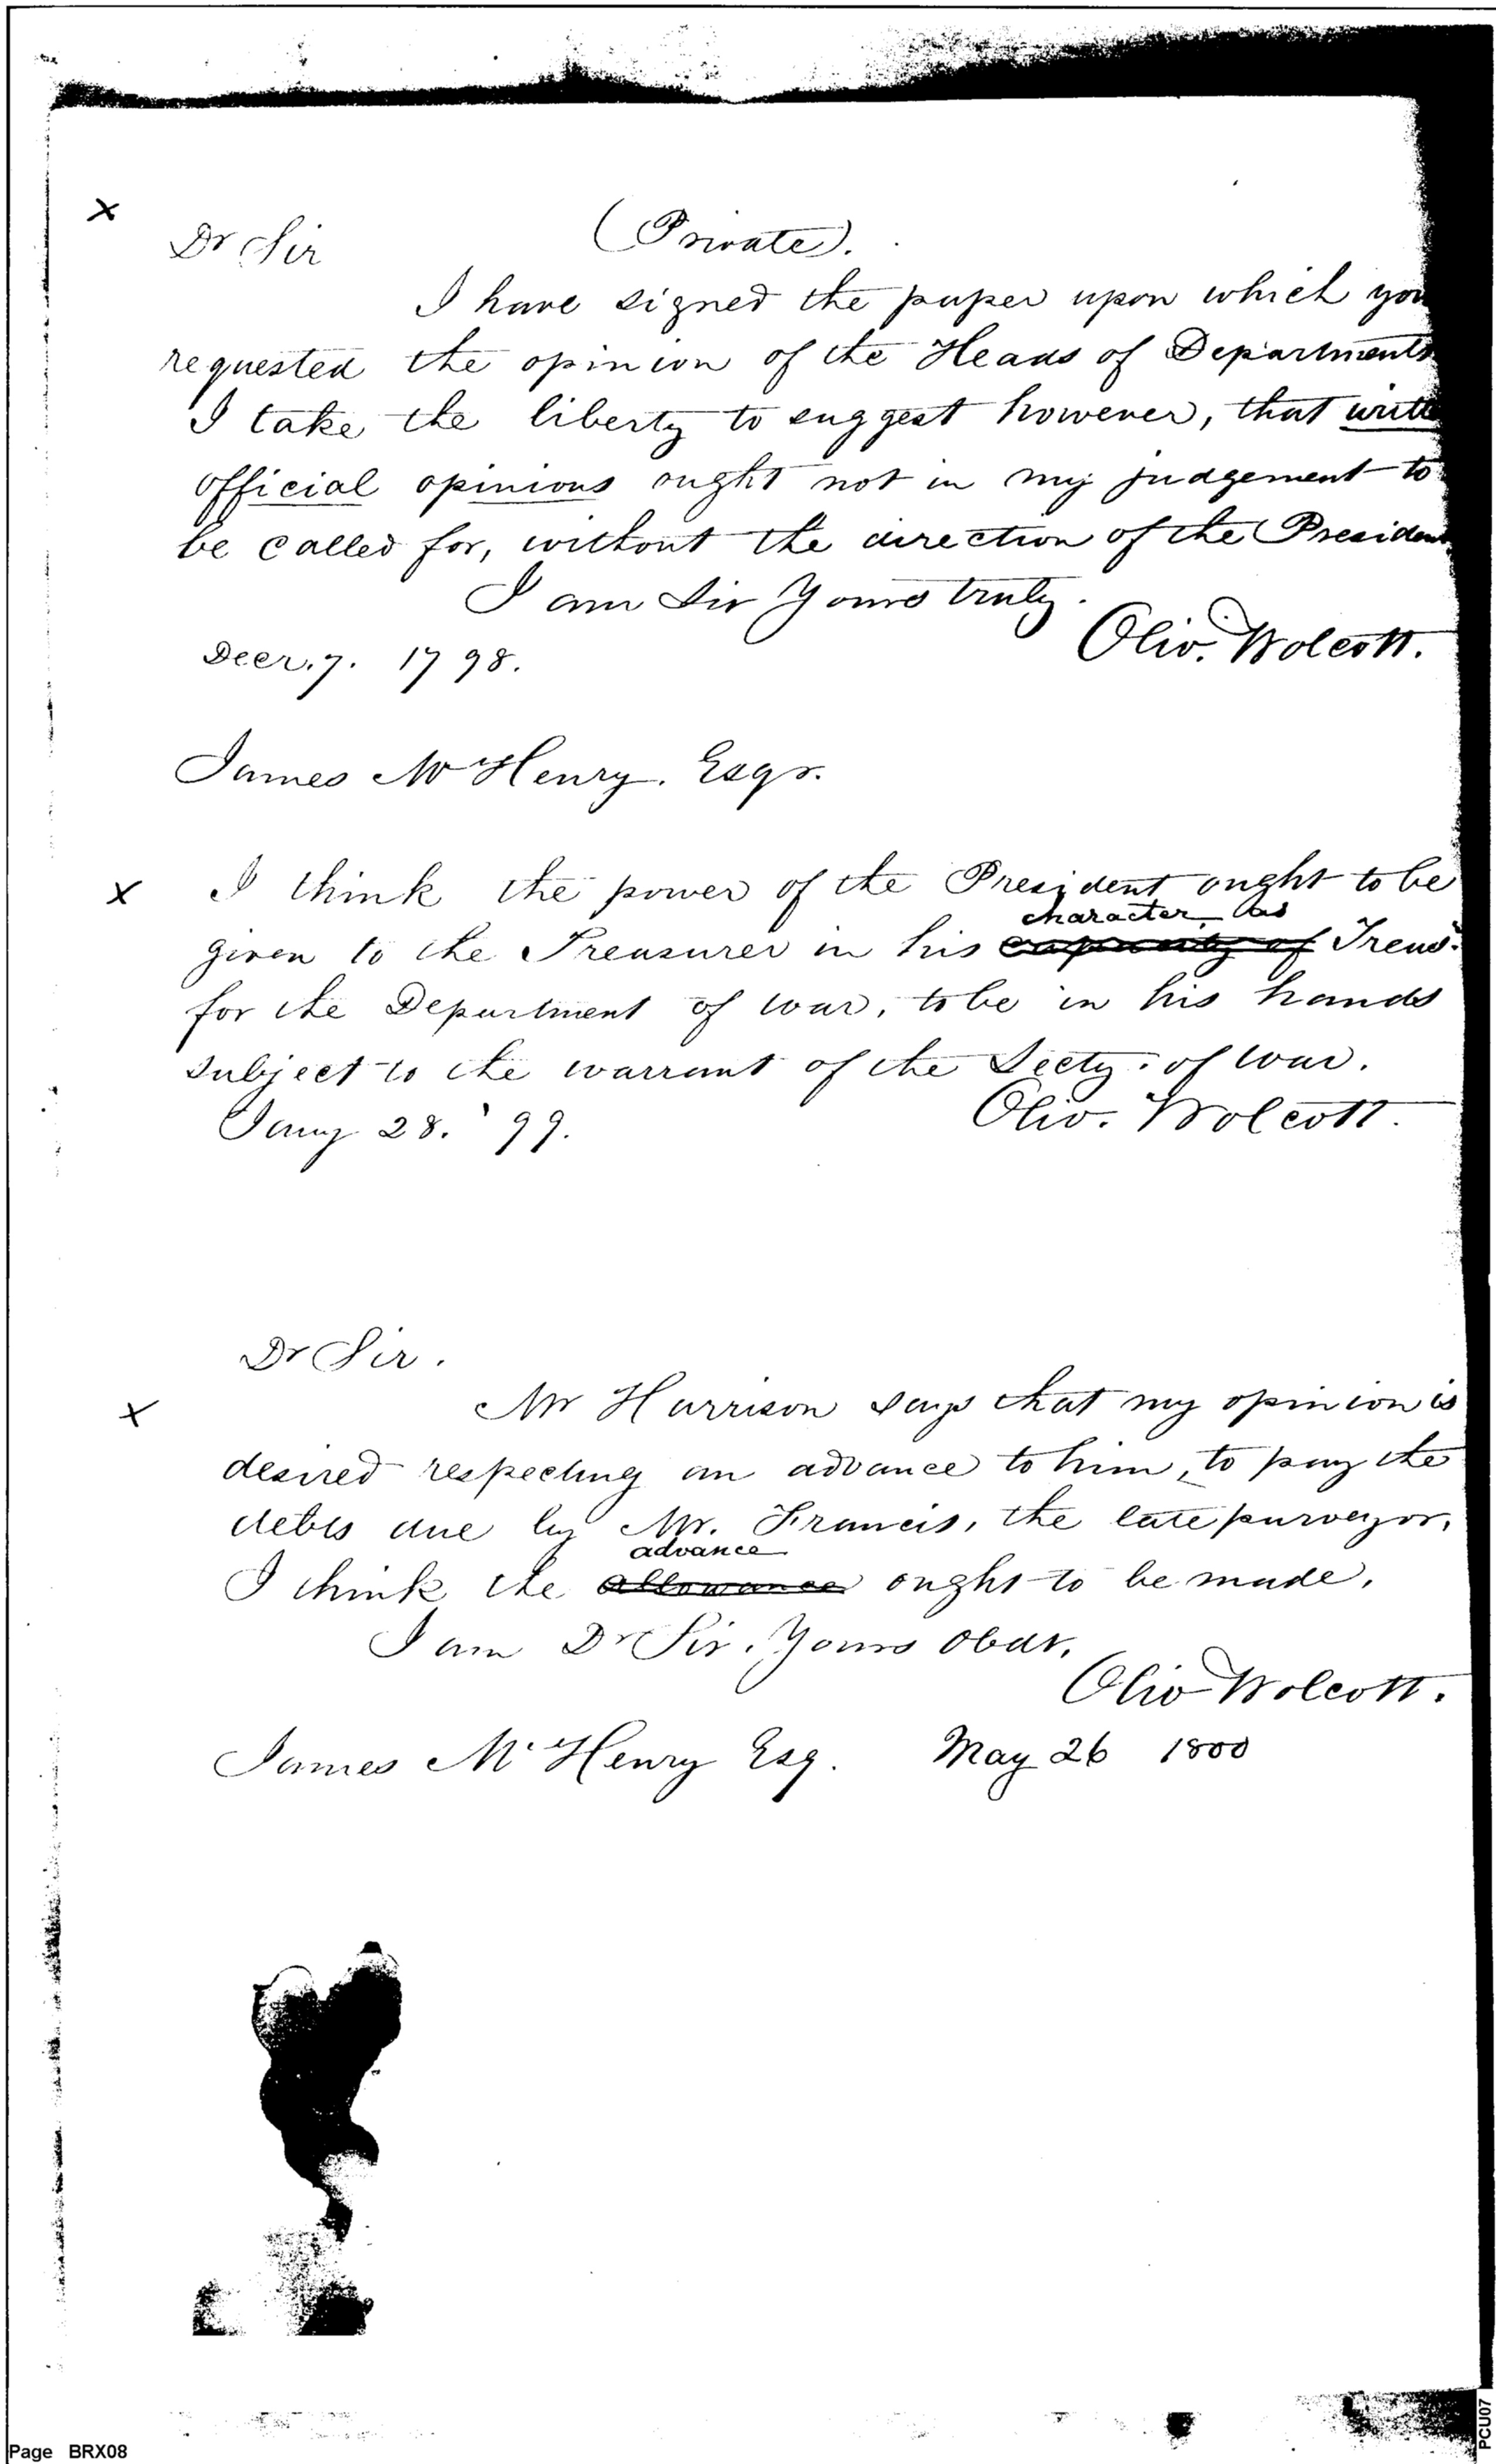 x
(Private).
Dr Sir
I have signed the paper upon which you
requested the opinion of the Heads of Departments
I take the liberty to suggest however, that writte
official opinions ought not in my judgement to
be called for, without the direction of the President
I am Sir Yours truly.
Oliv. Wolcott.
Decr. 7. 1798.
James McHenry. Esqr.
x I think the power of the President ought to be
character as
given to the Treasurer in his capacity of Treasr.
for the Department of war, to be in his hands
subject to the warrant of the Secty. of war.
Jany 28. '99. Oliv. Wolcott.
Dr Sir.
x Mr Harrison says that my opinion is
desired respecting an advance to him, to pay the
debts due by Mr. Francis, the late purveyor.
advance
I think the allowance ought to be made.
I am Dr Sir. Yours obdt.
Oliv Wolcott.
James McHenry Esq. May 26 1800
Page BRX08
PCU07